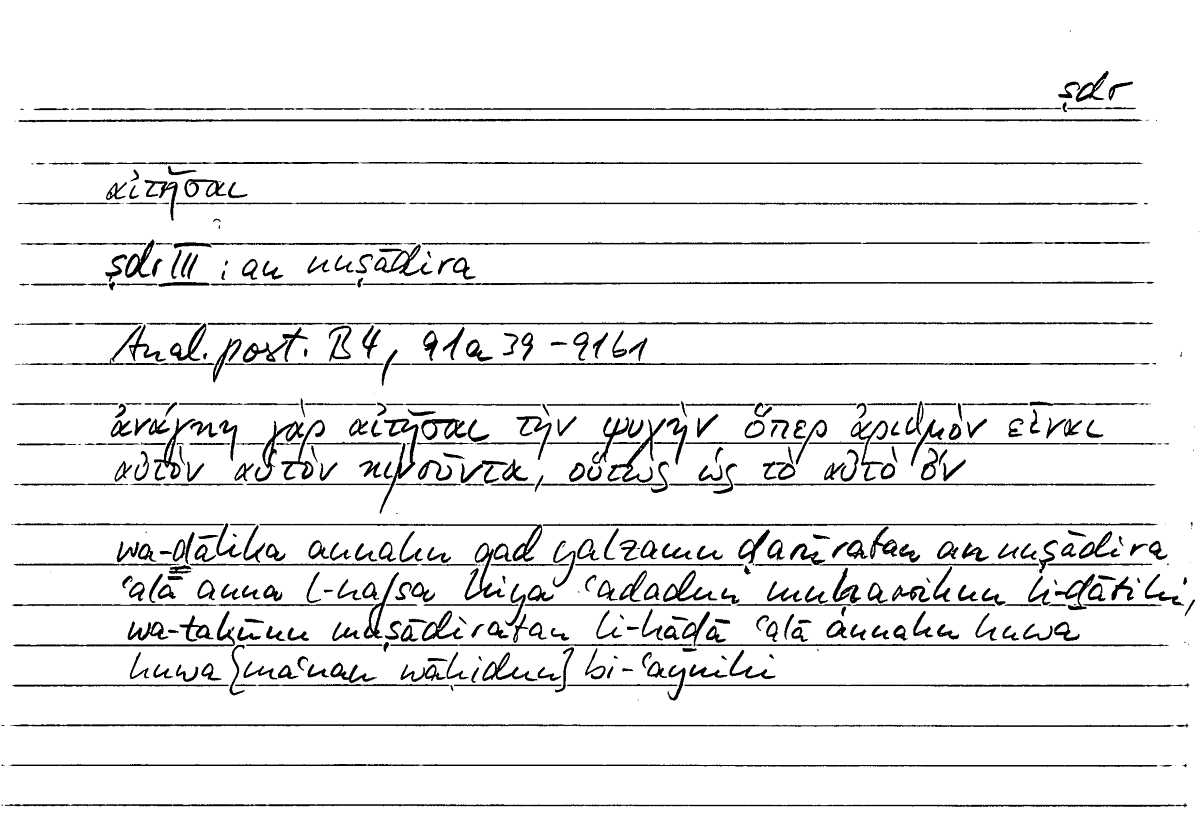 ṣdr
αἰτῆσαι
ṣdr III : an nuṣādira
Anal. post. B 4, 91a 39 – 91b1
ἀνάγκη γὰρ αἰτῆσαι τὴν ψυχὴν ὅπερ ἀριθμὸν εἶναι
αὐτὸν αὑτὸν κινοῦντα, οὕτως ὡς τὸ αὐτὸ ὄν
wa-ḏālika annahu qad yalzamu ḍarūratan an nuṣādira
ʿalā anna l-nafsa hiya ʿadadun muḥarrikun li-ḏātihi,
wa-takūnu muṣādiratan li-hāḏā ʿalā annahu huwa
huwa {maʿnan wāḥidun} bi-ʿaynihi